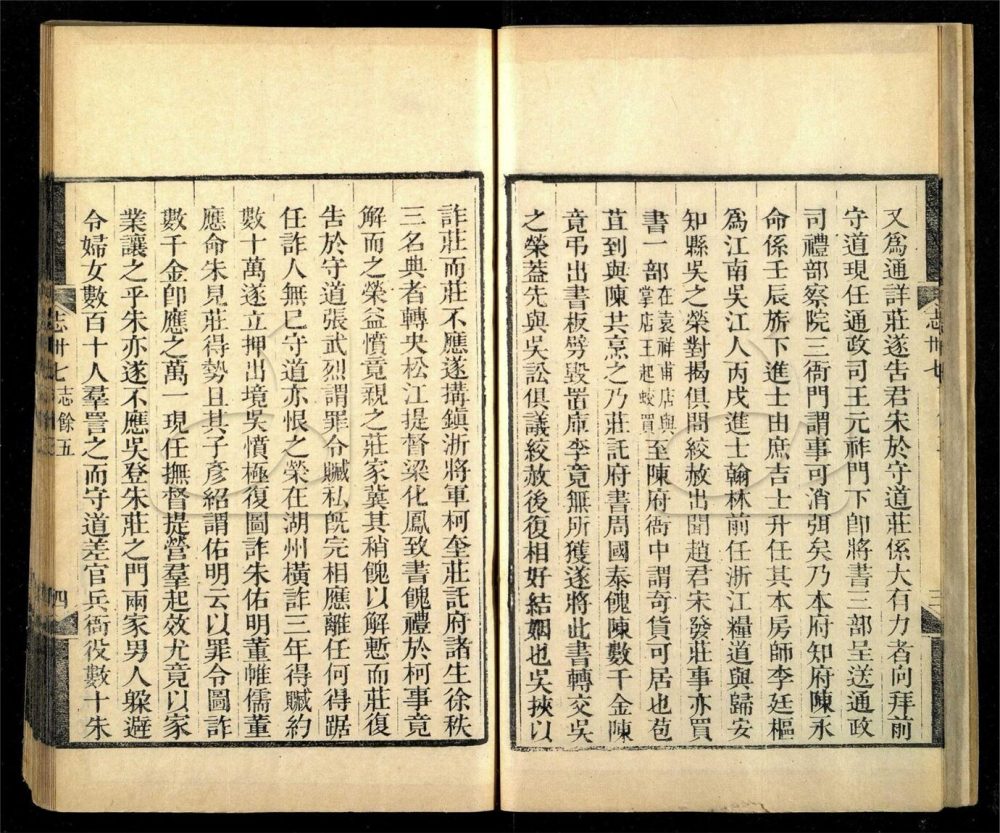 又爲通詳莊遂告君宋於守道莊係大有力者向拜前
守道現任通政司王元祚門下卽將書三部呈送通政
司禮部察院三衙門謂事可消弭矣乃本府知府陳永
命係壬辰旂下進士由庶吉士升任其本房師李廷樞
爲江南吳江人丙戌進士翰林前任浙江糧道與歸安
知縣吳之榮對揭俱問絞赦出聞趙君宋發莊事亦買
書一部在袁祥甫店與掌店王起蛟買至陳府衙中謂奇貨可居也苞
苴到與陳共烹之乃莊託府書周國泰餽陳數千金陳
竟弔出書板劈毀置庫李竟無所獲遂將此書轉交吳
之榮蓋先與吳訟俱議絞赦後復相好結姻也吳挾以
志卅七
三
志卅七志餘五
四
詐莊而莊不應遂搆鎭浙將軍柯奎莊託府諸生徐秩
三名典者轉央松江提督梁化鳳致書餽禮於柯事竟
解而之榮益憤竟親之莊家冀其稍餽以解慙而莊復
吿於守道張武烈謂罪令贓私旣完相應離任何得踞
任詐人無已守道亦恨之榮在湖州橫詐三年得贓約
數十萬遂立押出境吳憤極復圖詐朱佑明董帷儒董
應命朱見莊得勢且其子彥紹謂佑明云以罪令圖詐
數千金卽應之萬一現任撫督提營羣起效尤竟以家
業讓之乎朱亦遂不應吳登朱莊之門兩家男人躱避
令婦女數百十人羣詈之而守道差官兵衙役數十朱